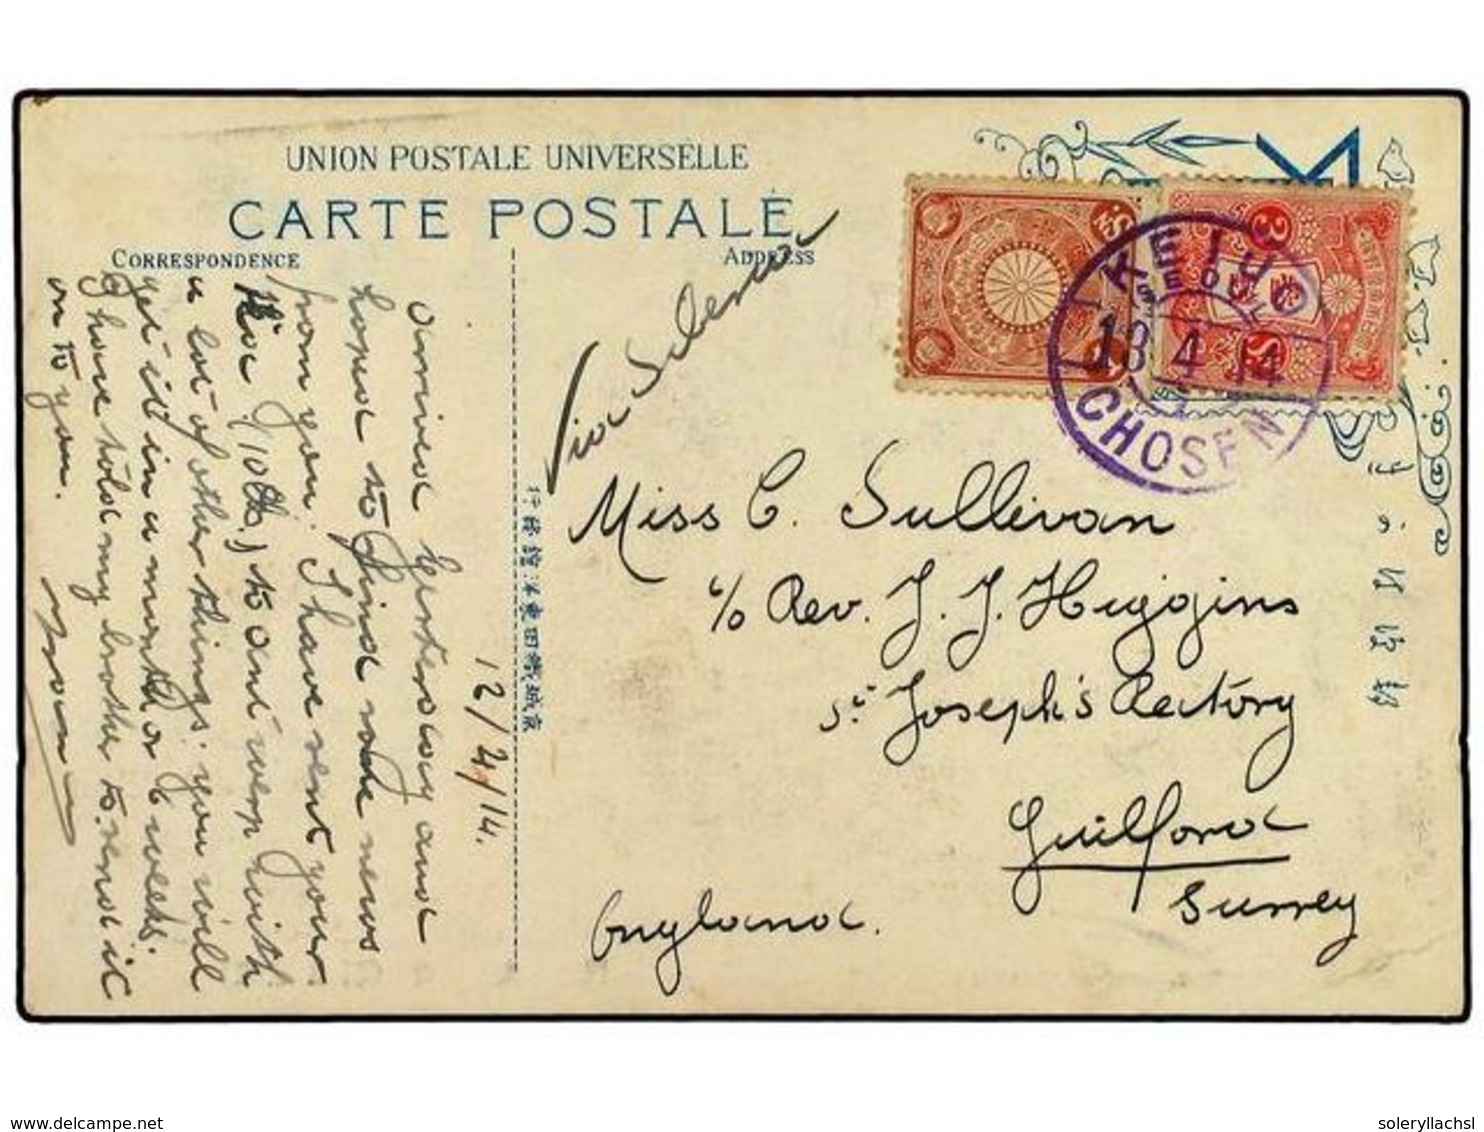 UNION POSTALE UNIVERSELLE
CARTE POSTALE
CORRESPONDENCE
ADDRESS
Via Siberia
KEIJO
SEOUL
13 4 14
CHOSEN
3
Miss C. Sullivan
c/o Rev. J. J. Higgins
St. Joseph's Rectory
Guilford
Surrey
England.
12/4/14.
Arrived yesterday and
hoped to find some news
from you. I have sent your
(10th) to and with
a lot of other things. you will
get it in a month or 6 weeks.
I have told my brother to send it
on to you.
delcampe.net
soleryllachsl